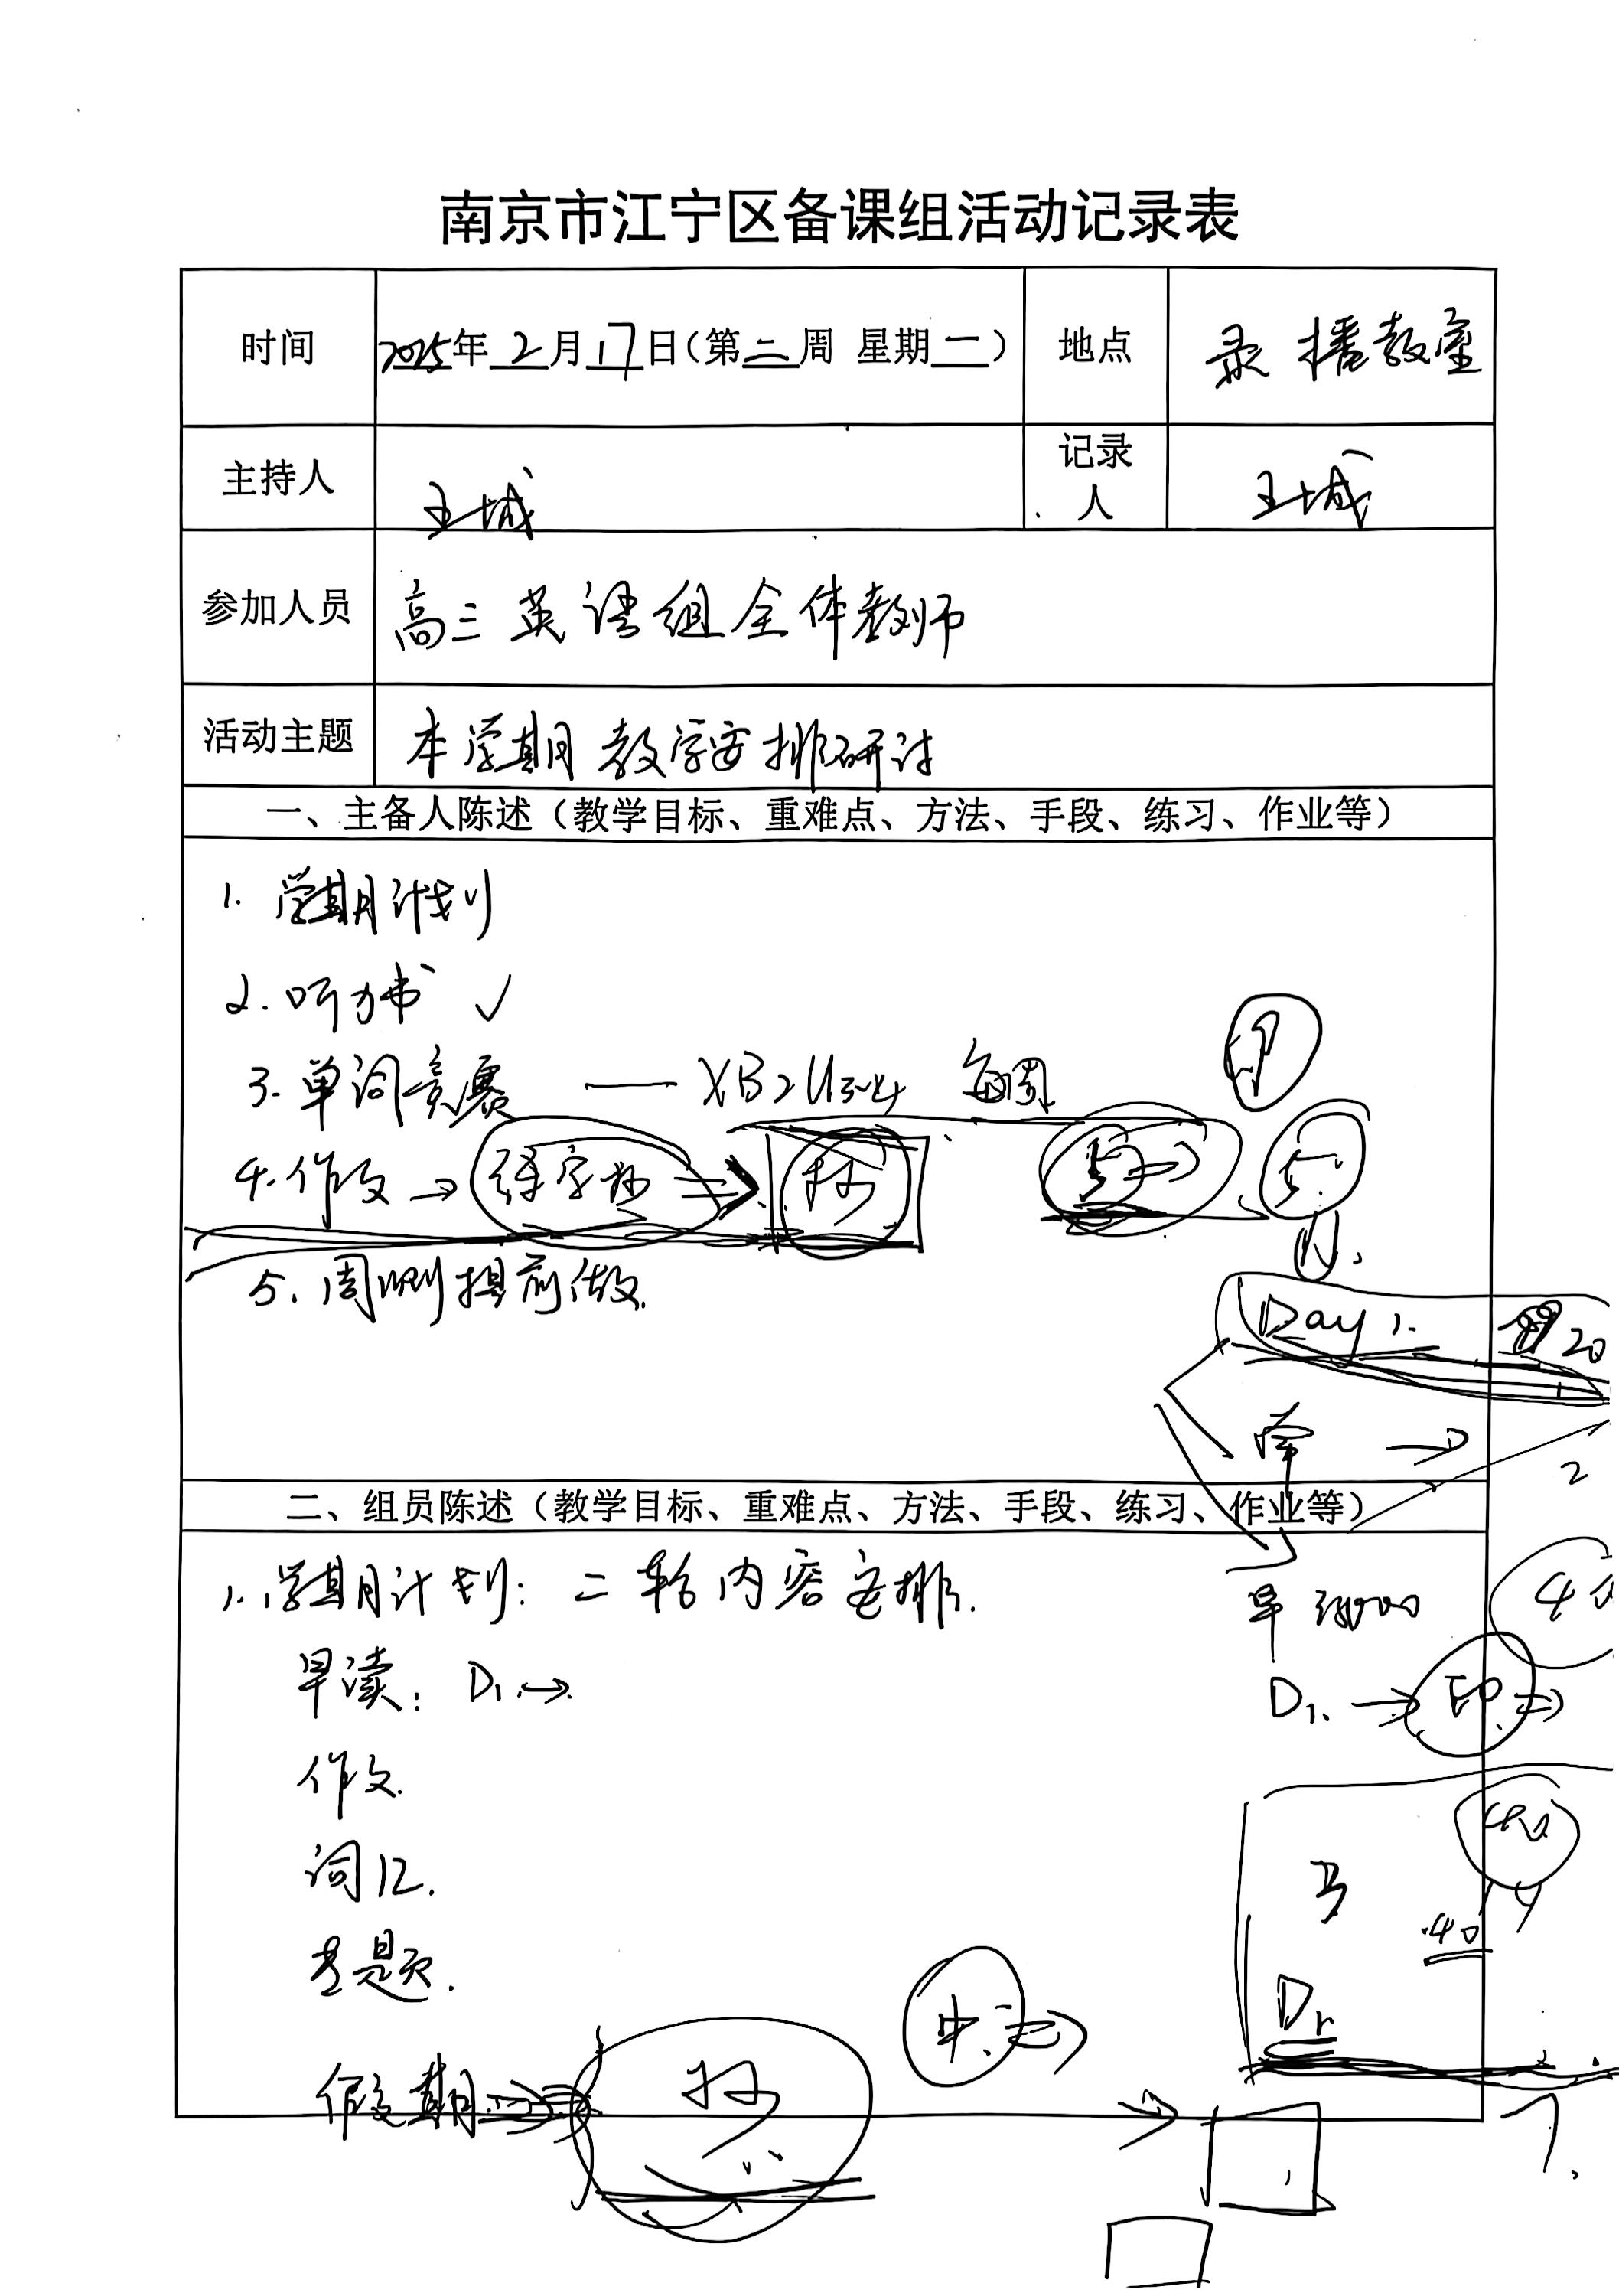 南京市江宁区备课组活动记录表
时间 2025年2月17日(第二周 星期一) 地点 录播教室
主持人 王城 记录人 王城
参加人员 高三英语组全体教师
活动主题 本学期教学安排研讨
一、主备人陈述(教学目标、重难点、方法、手段、练习、作业等)
1. 学期计划
2. 听力书 ✓
3. 单词竞赛 —— XB2U3~4 每周
4. 作文 → 练字抄 ⇒ 抄 5 5.
5. 周测提前做.
Day 1. 20
单 →
2
二、组员陈述(教学目标、重难点、方法、手段、练习、作业等)
1. 学期计划: 二轮内容安排.
早读: D1. →
早 4
D1. → 印 ⇒
作文.
词汇.
40
D1
假期 ⇒ 抄
7.